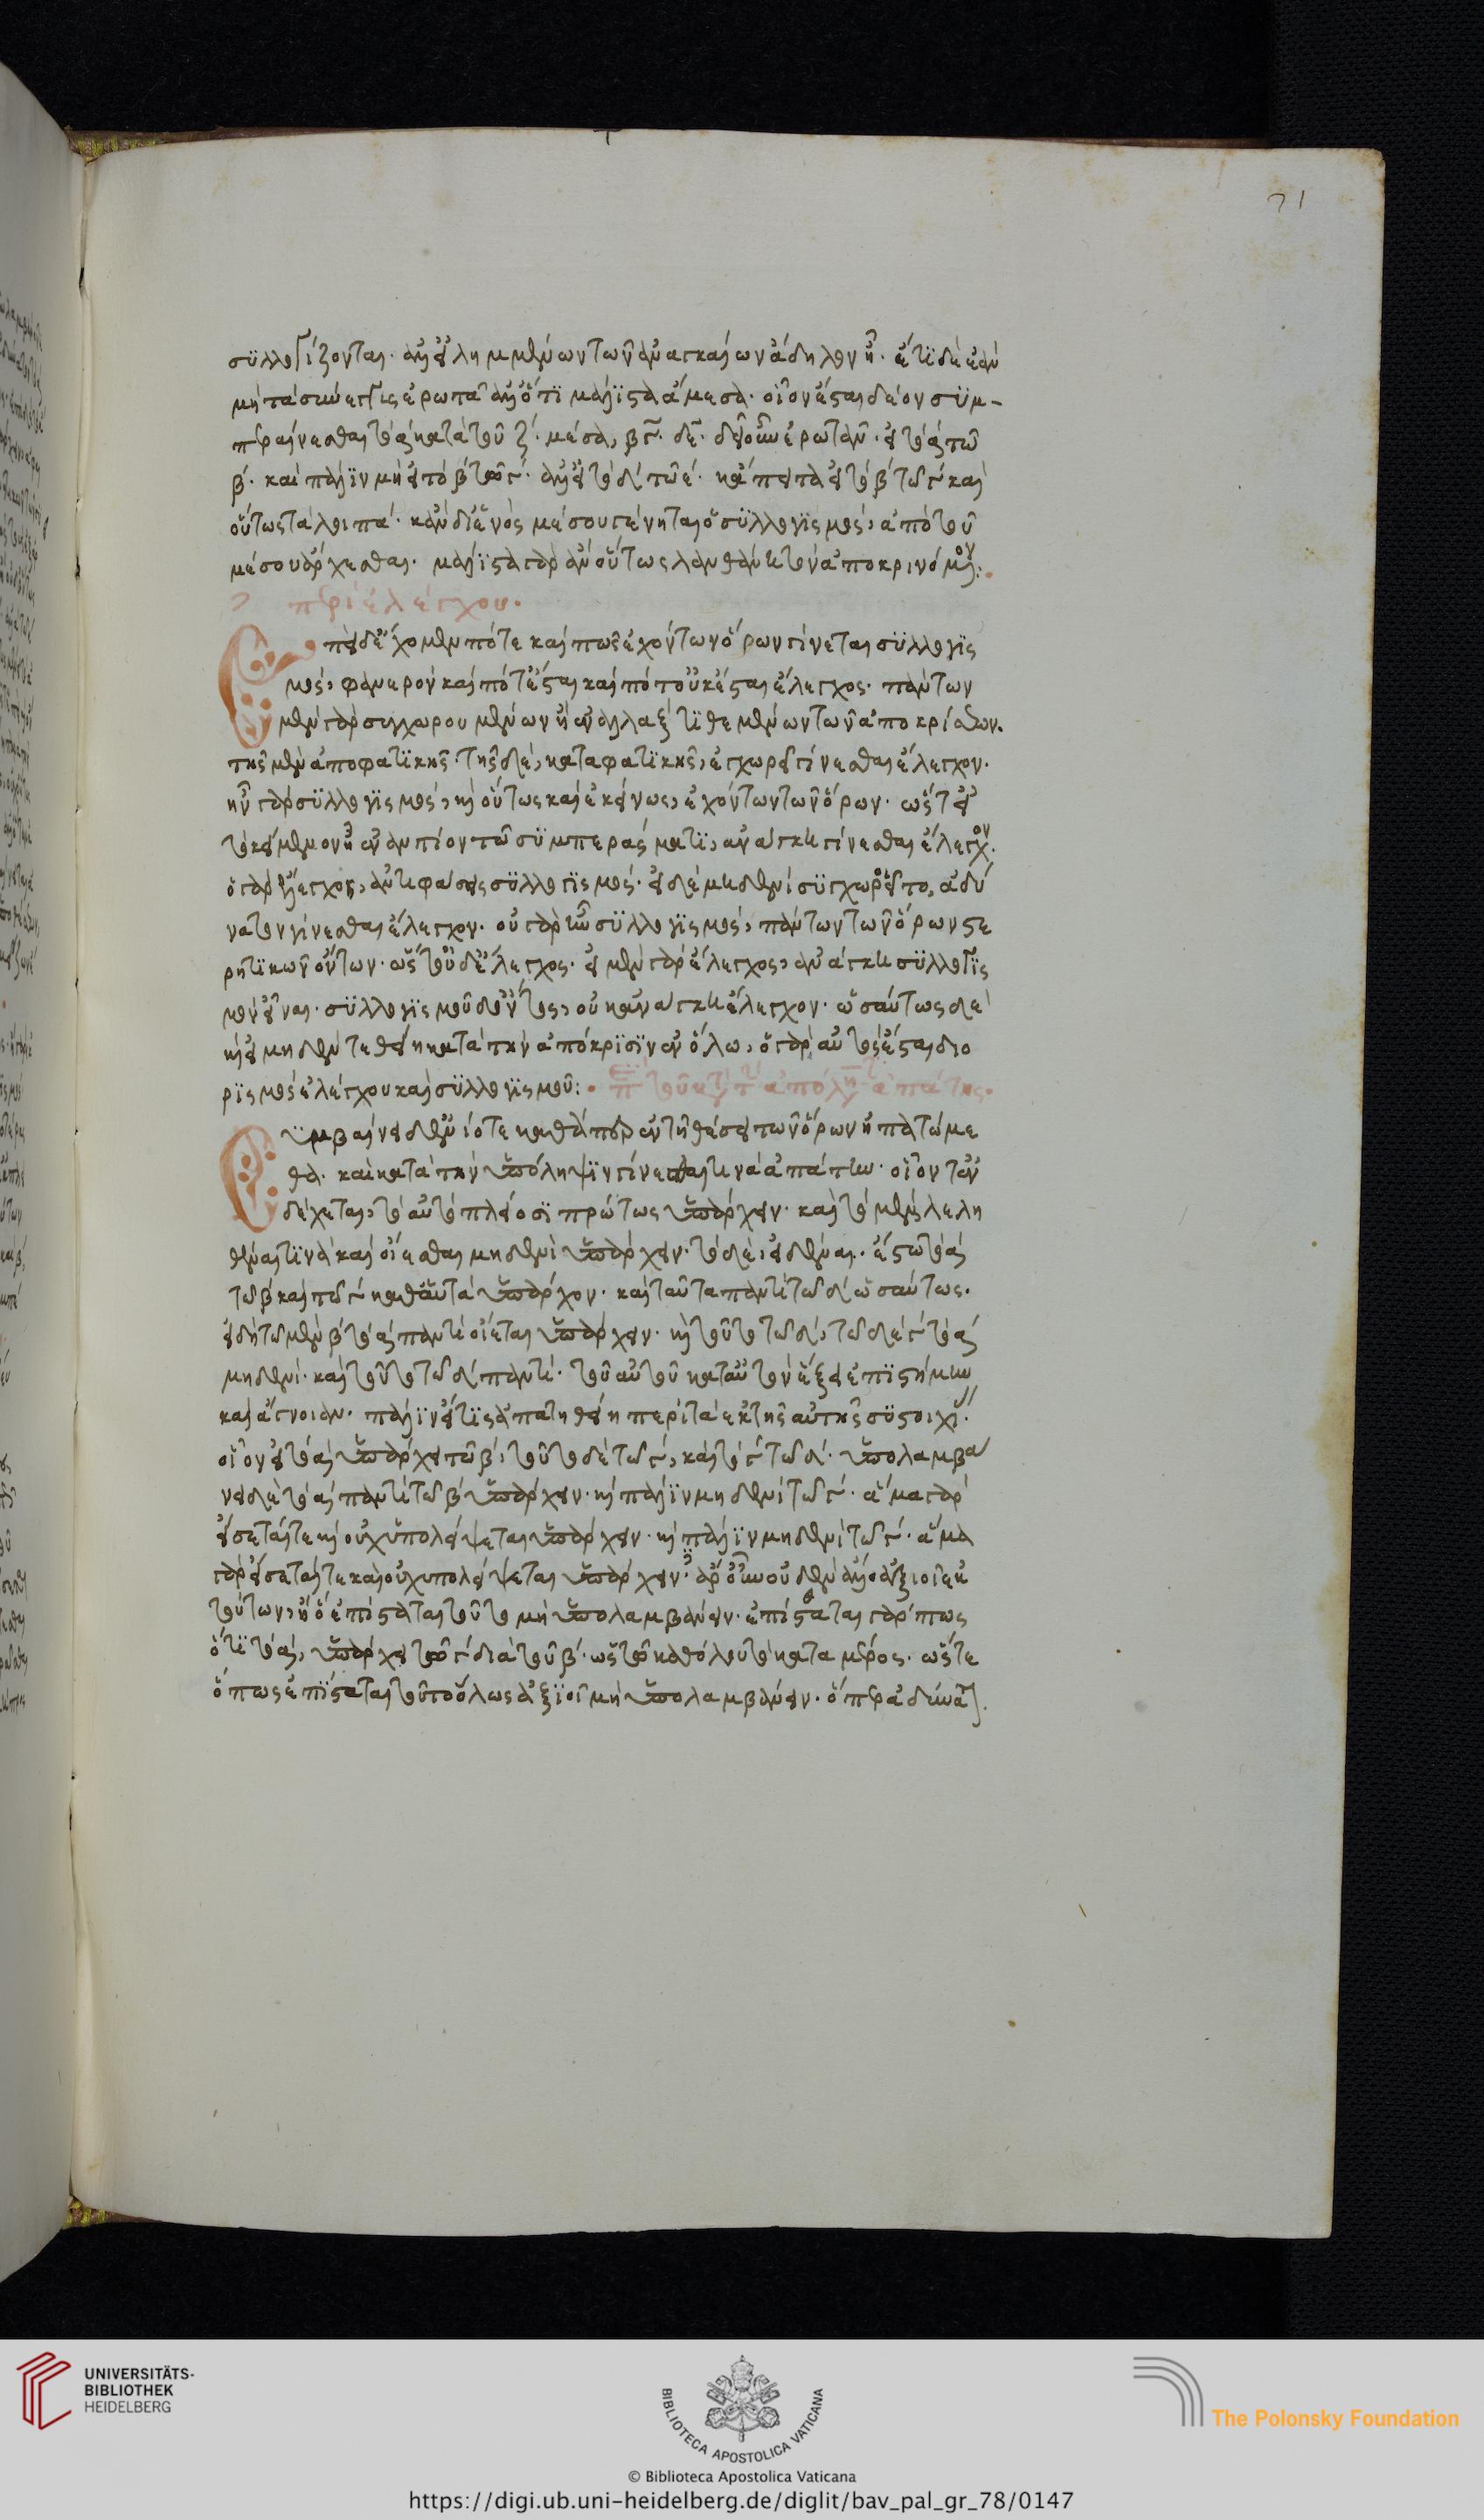 71
συλλογίζονται. ἀλλ' εἰλημμένων τῶν ἀναγκαίων ἄδηλον ᾖ. ἔτι δὲ ἐὰν
μὴ τὰ σύνεγγυς ἐρωτᾶ ἀλλ' ὅτι μάλιστα ἄμεσα. οἷον ἔσται δέον συμ-
περαίνεσθαι τὸ α κατὰ τοῦ ζ. μέσα, β γ δ ε. δεῖ οὖν ἐρωτᾶν. εἰ τὸ α τῶ
β. καὶ πάλιν μὴ εἰ τὸ β τῶ γ. ἀλλ' εἰ τὸ δ τῶ ε. κἄπειτα εἰ τὸ β τῶ γ καὶ
οὕτως τὰ λοιπά. κἂν δι' ἑνὸς μέσου γένηται ὁ συλλογισμός, ἀπὸ τοῦ
μέσου ἄρχεσθαι. μάλιστα γὰρ ἂν οὕτως λανθάνει τὸν ἀποκρινόμενον:
περὶ ἐλέγχου.
Ἐπεὶ δ' ἔχομεν πότε καὶ πῶς ἐχόντων ὅρων γίνεται συλλογισ
μός, φανερὸν καὶ πότ' ἔσται καὶ πότ' οὐκ ἔσται ἔλεγχος. πάντων
μὲν γὰρ συγχωρουμένων ἢ ἐναλλὰξ τιθεμένων τῶν ἀποκρίσεων.
τῆς μὲν ἀποφατικῆς. τῆς δὲ, καταφατικῆς, ἐγχωρεῖ γίνεσθαι ἔλεγχον.
ἦν γὰρ συλλογισμός, καὶ οὕτως καὶ ἐκείνως, ἐχόντων τῶν ὅρων. ὥστ' εἰ
τὸ κείμενον ᾖ ἐναντίον τῶ συμπεράσματι, ἀνάγκη γίνεσθαι ἔλεγχον.
ὁ γὰρ ἔλεγχος, ἀντιφάσεως συλλογισμός. εἰ δὲ μηδὲν συγχωροῖτο, ἀδύ
νατον γίνεσθαι ἔλεγχον. οὐ γὰρ ἦν συλλογισμός, πάντων τῶν ὅρων στε
ρητικῶν ὄντων. ὥστ' οὐδ' ἔλεγχος. εἰ μὲν γὰρ ἔλεγχος, ἀνάγκη συλλογισ
μὸν εἶναι. συλλογισμοῦ δ' ὄντος, οὐκ ἀνάγκη ἔλεγχον. ὡσαύτως δὲ
καὶ εἰ μηδὲν τεθείη κατὰ τὴν ἀπόκρισιν ἐν ὅλω, ὁ γὰρ αὐτὸς ἔσται διο
ρισμὸς ἐλέγχου καὶ συλλογισμοῦ:
Συμβαίνει δ' ἐνίοτε καθάπερ ἐν τῆ θέσει τῶν ὅρων ἠπατώμε
θα. καὶ κατὰ τὴν ὑπόληψιν γίνεσθαι τινὰ ἀπάτην. οἷον τ' ἐν
δέχεται, τὸ αὐτὸ πλείοσι πρώτως ὑπάρχειν. καὶ τὸ μὲν λελη
θέναι τινὰ καὶ οἴεσθαι μηδενὶ ὑπάρχειν. τὸ δὲ, εἰδέναι. ἔστω τὸ α
τῶ β καὶ τῶ γ καθ' αὑτὰ ὑπάρχον. καὶ ταῦτα παντὶ τῶ δ ὡσαύτως.
εἰ δὴ τῶ μὲν β τὸ α παντὶ οἴεται ὑπάρχειν. καὶ τοῦτο τῶ δ, τῶ δὲ γ τὸ α
μηδενί. καὶ τοῦτο τῶ δ παντί. τοῦ αὐτοῦ κατ' αὐτὸν ἕξει ἐπιστήμην
καὶ ἄγνοιαν. πάλιν εἴ τις ἀπατηθείη περὶ τὰ ἐκ τῆς αὐτῆς συστοιχί.
οἷον εἰ τὸ α ὑπάρχει τῶ β, τοῦτο δὲ τῶ γ, καὶ τὸ γ τῶ δ. ὑπολαμβά
νει δὲ τὸ α παντὶ τῶ β ὑπάρχειν. καὶ πάλιν μηδενὶ τῶ γ. ἅμα γὰρ
εἴσεταί τε καὶ οὐχ ὑπολείψεται ὑπάρχειν. καὶ πάλιν μηδενὶ τῶ γ. ἅμα
γὰρ εἴσεταί τε καὶ οὐχ υπολείψεται ὑπάρχειν. ἆρ' οὖν οὐδὲν ἄλλο ἀξιοῖ ἐκ
τούτων, ἢ ὃ ἐπίσταται τοῦτο μὴ ὑπολαμβάνειν. ἐπίσταται γάρ πως
ὅτι τὸ α, ὑπάρχει τῶ γ διὰ τοῦ β. ὡς τῶ καθόλου τὸ κατα μέρος. ὥστε
ὅπως ἐπίσταται τοῦτο ὅλως ἀξιοῖ μὴ ὑπολαμβάνειν. ὅπερ ἀδύνατον.
UNIVERSITÄTS-
BIBLIOTHEK
HEIDELBERG
BIBLIOTECA APOSTOLICA VATICANA
© Biblioteca Apostolica Vaticana
The Polonsky Foundation
https://digi.ub.uni-heidelberg.de/diglit/bav_pal_gr_78/0147